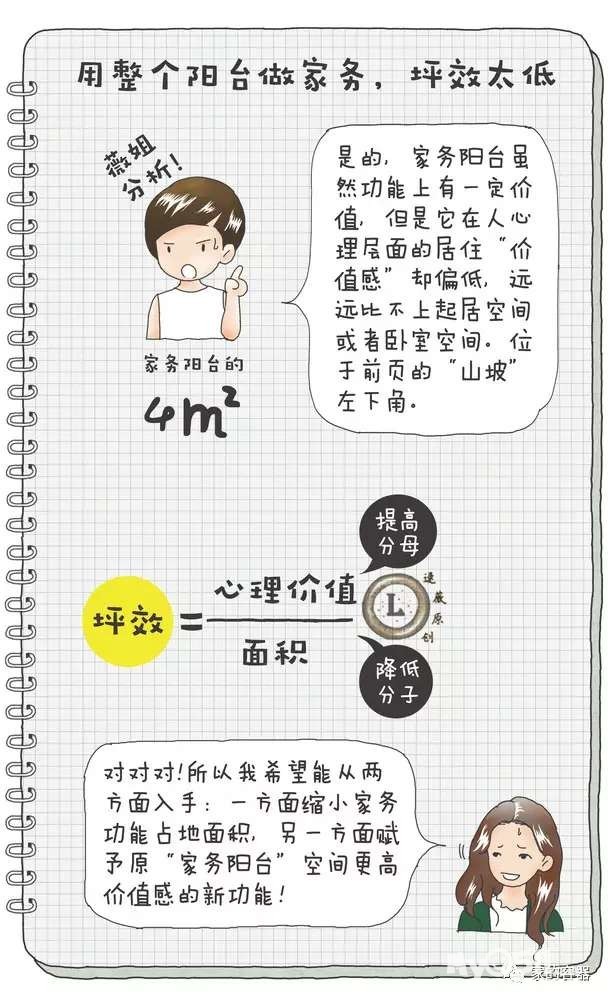 用整个阳台做家务，坪效太低
薇姐
分析！
是的，家务阳台虽
然功能上有一定价
值，但是它在人心
理层面的居住“价
值感”却偏低，远
远比不上起居空间
或者卧室空间。位
于前页的“山坡”
左下角。
家务阳台的
4m²
提高
分母
坪效=心理价值
面积
L
逯薇原创
降低
分子
对对对！所以我希望能从两
方面入手：一方面缩小家务
功能占地面积，另一方面赋
予原“家务阳台”空间更高
价值感的新功能！
家的容器